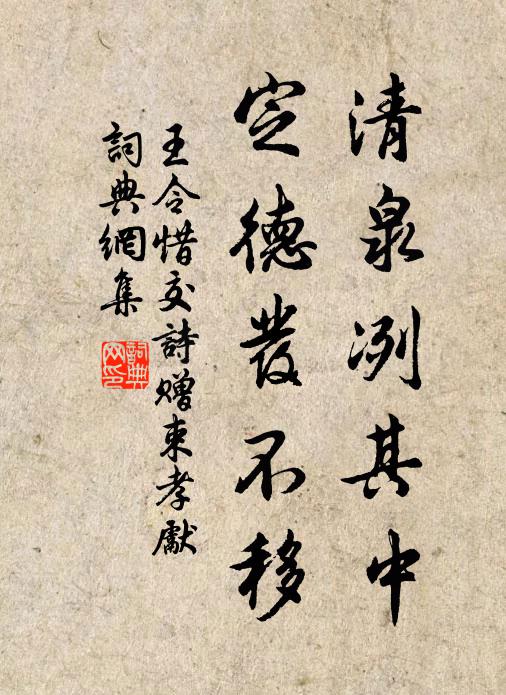 清泉冽其中
定德發不移
王令惜交詩贈束孝獻
詞典網集
詞典
网印